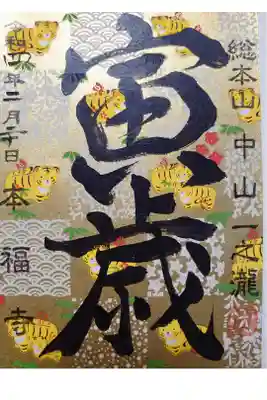 総本山 中山 一之瀧
寅歳
令和四年二月 日 本福寺